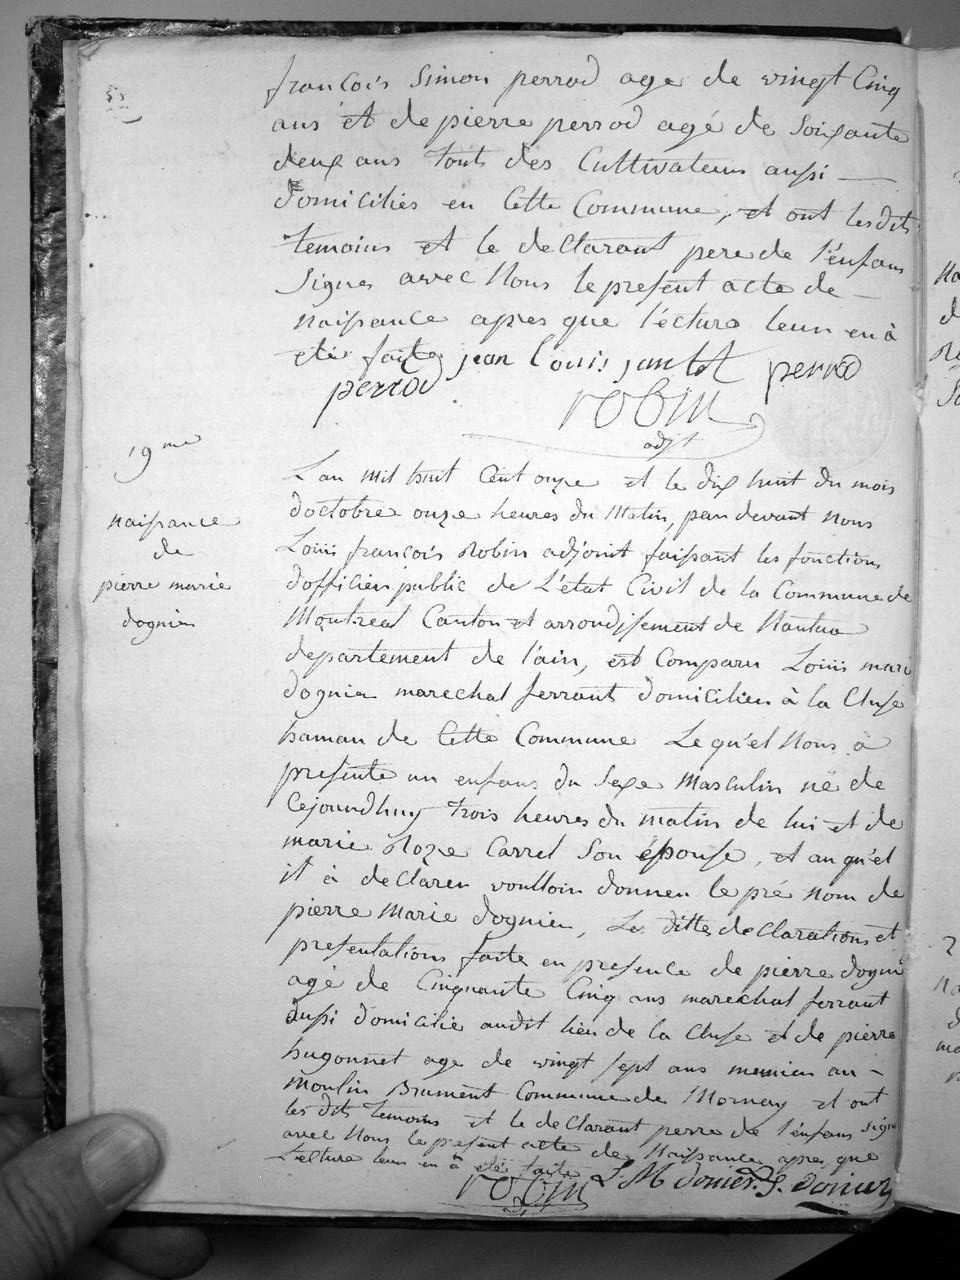 françois Simon perrod age de vingt Cinq
ans et de pierre perrod agé de Soixante
deux ans touts des Cultivateurs aussi
domiciliés en Cette Commune, et ont lesdits
temoins et le declarant pere de l'enfans
Signes avec Nous le present acte de
naissance apres que l'ecture leur en à
eté faite jean louis jantet perrod
perrod
robin
adjt
19me
naissance
de
pierre marie
dognier
L'an mil huit Cent onze et le dix huit du mois
doctobre onze heures du Matin, par devant nous
Louis françois Robin adjoint faissant les fonctions
dofficier public de L'état Civil de la Commune de
Montreal Canton et arrondissement de Nantua
departement de l'ain, est Comparu Louis mari
dognier marechal ferrant domicilier à la Cluse
hamau de Cette Commune Lequ'el Nous à
presente un enfans du Sexe Masculin né de
Cejourdhuy trois heures du matin de lui et de
marie Roze Carrel Son épouse, et auqu'el
il à declarer voulloir donner le pré nom de
pierre Marie dognier, Les dittes declarations et
presentations faite en presence de pierre dognier
agé de Cinquante Cinq ans marechal ferrant
aussi domicilie audit lieu de la Cluse et de pierre
hugonnet age de vingt sept ans meunier au
moulin Brument Commune de Mornay et ont
les dits temoins et le declarant perre de l'enfans signé
avec Nous le present acte de Naissance apres que
L'ecture leur en à eté faite
robin L M donier P. donier